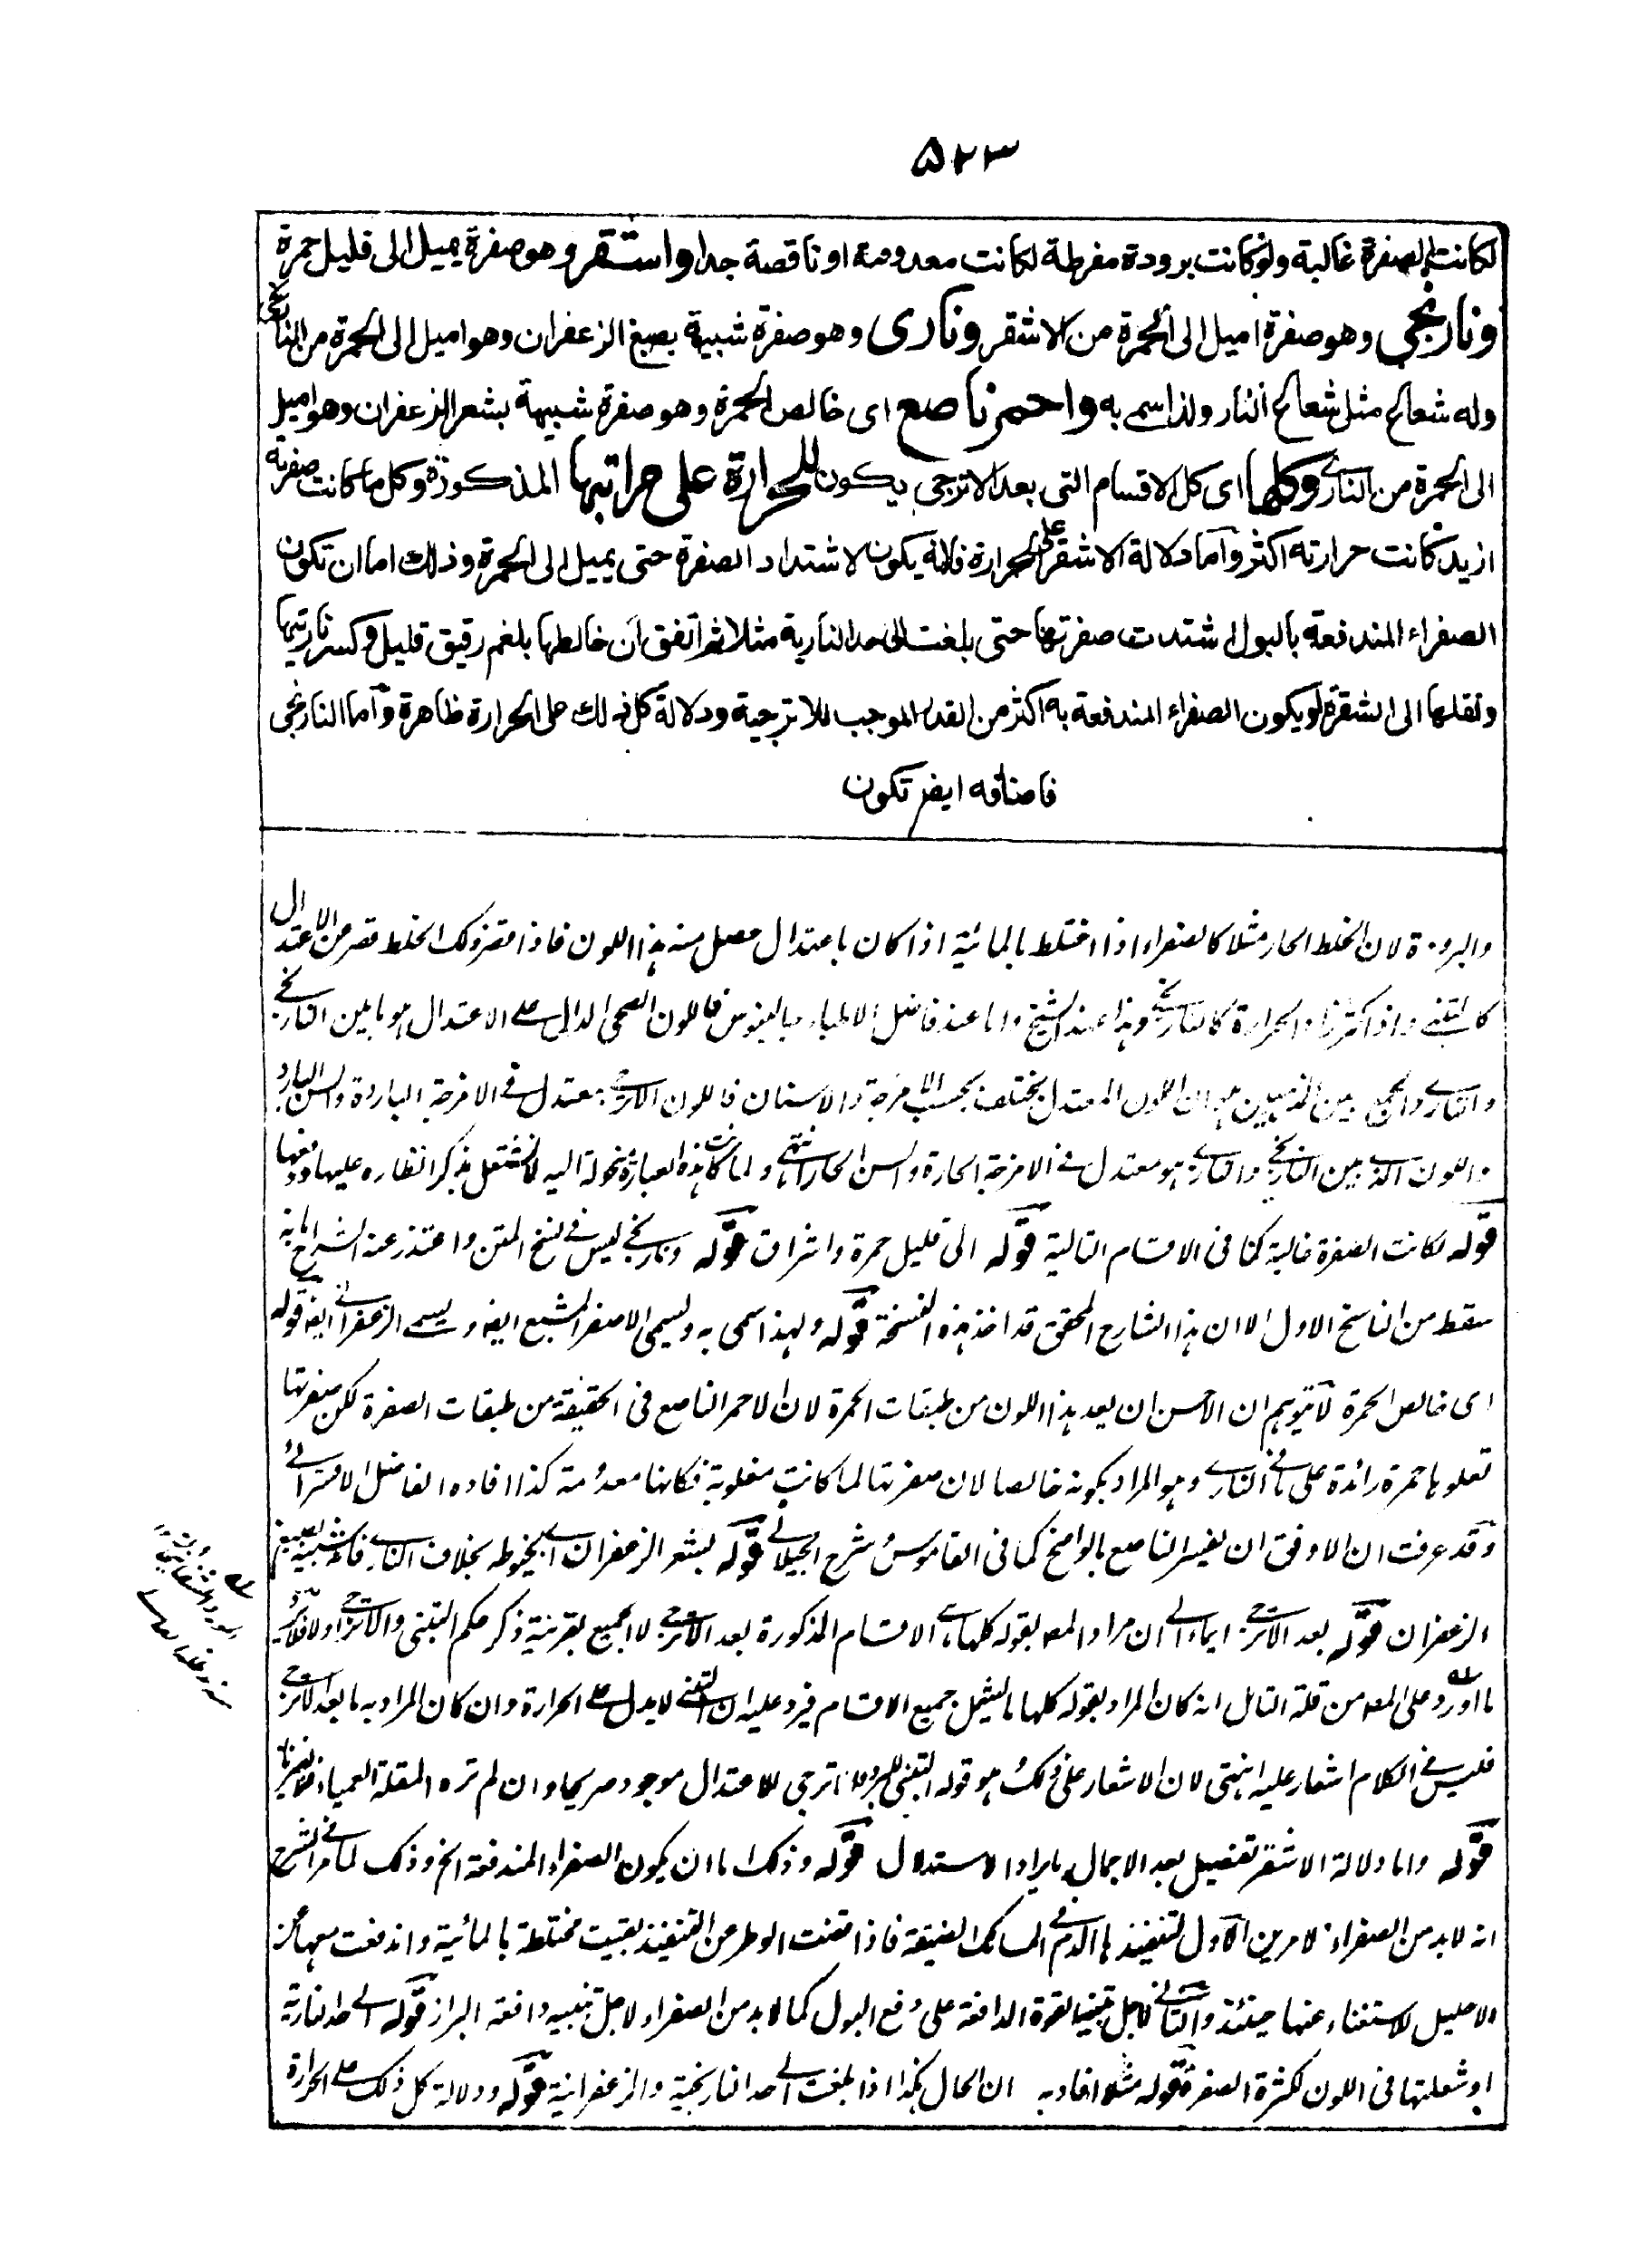 ۵۲۳
لكانت الصفرة غالبة ولو كانت برودة مفرطة لكانت معدومة او ناقصة جدا واشقر وهو صفرة يميل الى قليل حمرة
ونارنجى وهو صفرة اميل الى الحمرة من الاشقر ونارى وهو صفرة شبيهة بصبغ الزعفران وهو اميل الى الحمرة من النارنجى
وله شعاع مثل شعاع النار ولذا سمى به واحمر ناصع اى خالص الحمرة وهو صفرة شبيهة بشعر الزعفران وهو اميل
الى الحمرة من النارى وكلها اى كل الاقسام التى بعد الاترجى يكون للحرارة على مراتبها المذكورة وكل ما كانت صفرته
ازيد كانت حرارته اكثر واما دلالة الاشقر على الحرارة فلانه يكون لاشتداد الصفرة حتى يميل الى الحمرة وذلك اما ان تكون
الصفراء المندفعة بالبول اشتدت صفرتها حتى بلغت الى حد النارية مثلا ثم اتفق ان خالطها بلغم رقيق قليل وكسر ناريتها
ونقلها الى الشقرة او يكون الصفراء المندفعة به اكثر من القدر الموجب للاترجية ودلالة كل ذلك على الحرارة ظاهرة واما النارنجى
فاضافه ايض تكون
والبرودة لان الخلط الحار مثلا كالصفراء اذا اختلط بالمائية اذا كان باعتدال حصل منه هذا اللون فاذا قصر ذلك الخلط قصر عن الاعتدال
كالتبنى واذا كثر زاد الحرارة كالنارنجى وهذا عند الشيخ واما عند فاضل الاطباء جالينوس فاللون الصحى الدال على الاعتدال هو ما بين النارنجى
والنارى والجمع بين المذهبين هو ان اللون المعتدل يختلف بحسب الامزجة والاسنان فاللون الاترجى معتدل فى الامزجة الباردة والسن البارد
واللون الذى بين النارنجى والنارى هو معتدل فى الامزجة الحارة والسن الحار انتهى ولما كانت هذه العبارة منحولة اليه لا نشتغل بذكر انظاره عليها ودفعها
قوله لكانت الصفرة غالبة كما فى الاقسام التالية قوله الى قليل حمرة واشراق قوله ونارنجى ليس فى نسخ المتن واعتذر عنه الشراح بانه
سقط من الناسخ الاول الا ان هذا الشارح المحقق قد اخذ هذه النسخة قوله ولهذا سمى به ويسمى الاصفر المشبع ايض ويسمى الزعفرانى ايض قوله
اى خالص الحمرة لا يتوهم ان الاحسن ان يعد هذا اللون من طبقات الحمرة لان الاحمر الناصع فى الحقيقة من طبقات الصفرة لكن صفرتها
تعلوها حمرة زائدة على ما فى النارى وهو المراد بكونه خالصا لان صفرتها لما كانت مغلوبة فكانها معدومة كذا افاده الفاضل الاقسرائى
وقد عرفت ان الاوفق ان يفسر الناصع بالواضح كما فى القاموس شرح الجيلانى قوله بشعر الزعفران اى بخيوطه بخلاف النارى فانه شبيه بصبغ
الزعفران قوله بعد الاترجى ايماء الى ان مراد المصـ بقوله كلها اى الاقسام المذكورة بعد الاترجى لا الجميع بقرينة ذكر حكم التبنى والاترجى اولا فلا يرد
ما اورد على المصـ من قلة التامل انه كان المراد بقوله كلها ما يشمل جميع الاقسام فيرد عليه ان التبنى لا يدل على الحرارة وان كان المراد به ما بعد الاترجى
فليس فى الكلام اشعار عليه انتهى لان الاشعار على ذلك هو قوله التبنى للبرد والاترجى للاعتدال موجود صريحا وان لم تره المقلة العمياء
قوله واما دلالة الاشقر تفصيل بعد الاجمال بايراد الاستدلال قوله وذلك اما ان يكون الصفراء المندفعة الخ وذلك لما مر فى الشرح
انه لابد من الصفراء لامرين الاول لتنفيذها الدم فى المسالك الضيقة فاذا قضت الوطر عن التنفيذ بقيت مختلطة بالمائية واندفعت معها من
الاحليل للاستغناء عنها حينئذ والثانى لاجل تنبيه القوة الدافعة على دفع البول كما لابد من الصفراء لاجل تنبيه دافعة البراز قوله الى حد النارية
اى شعلتها فى اللون لكثرة الصفرة قوله مثلا افاد به ان الحال كذا اذا بلغت الى حد النارنجية والزعفرانية قوله ودلالة كل ذلك على الحرارة